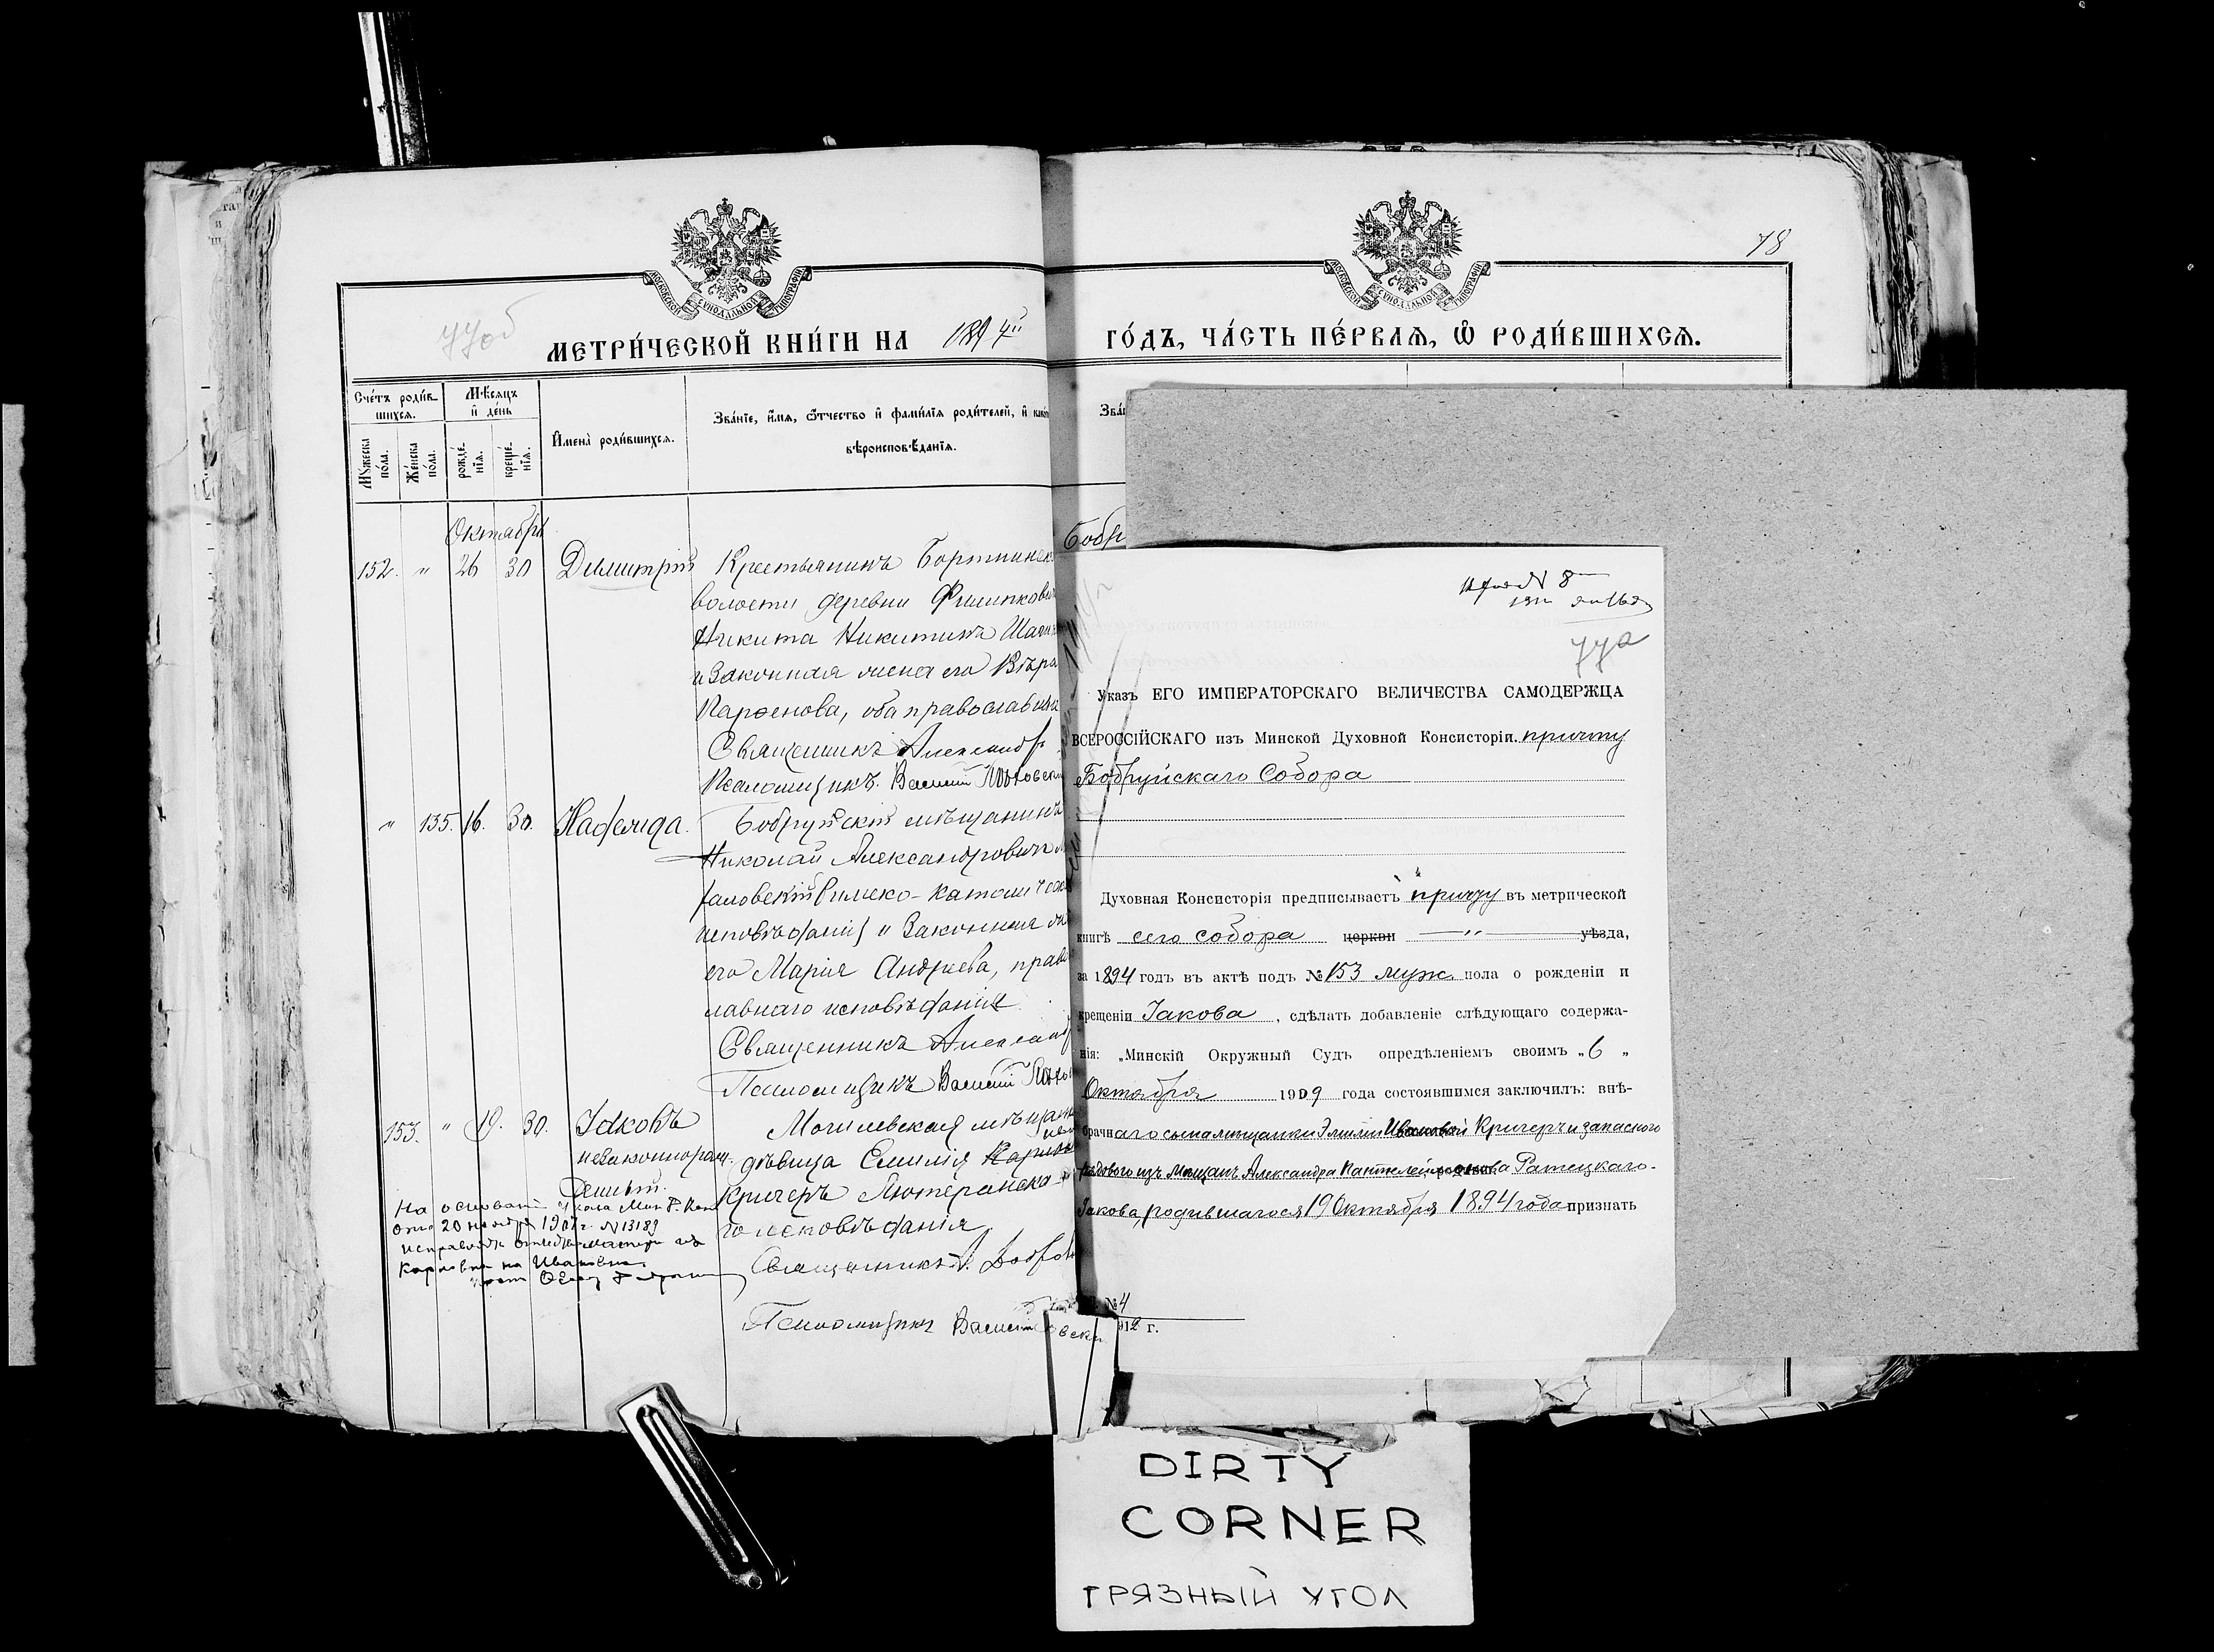 78
77об
МЕТРИ́ЧЕСКОЙ КНИ́ГИ НА 1894й ГО́ДЪ, ЧА́СТЬ ПЕ́РВАЯ, Ѡ РОДИ́ВШИХСЯ.
МОСКОВСКОЙ СУНОДАЛЬНОЙ ТИПОГРАФІИ
МОСКОВСКОЙ СУНОДАЛЬНОЙ ТИПОГРАФІИ
Сче́тъ роди́вшихся.
Мѣ́сяцъ и҆ де́нь
Мꙋ́жеска по́ла.
Же́нска по́ла.
рожде́нїѧ.
креще́нїѧ.
И҆мена̀ роди́вшихся.
Зва́нїе, и҆́мѧ, ѻ҆́тчество и҆ фами́лїѧ роди́телей, и҆ како́
вѣроисповѣ́данїѧ.
Зва́
Октябрь
152. " 26 30 Димитрій Крестьянинъ Бортник
волости деревни Филипкови
Никита Никитинъ
и законная жена его Вѣра
Парѳенова, оба православн
Священникъ Александр
Псаломщикъ Василий
" 135. 16. 30. Надежда. Бобруйскій мѣщанинъ
Николай Александровичъ
римско-католическ
исповѣданія и законная
его Марія Андреева, право
славнаго исповѣданія
Священникъ Александ
Псаломщикъ Василий
153. " 19. 30. Іаковъ Могилевская мѣщанка
незаконнорож
денный.
дѣвица Емилія Карло
Кригеръ Лютеранска
го исповѣданія
Священникъ А.
Псаломщикъ Василий
На основаніи Указа Мин. Д. Кон
отъ 20 ноября 190 г. N 13189
исправлено отчество матери изъ
Карловна на Ивановна
Бобр
N 8
77а
Указъ ЕГО ИМПЕРАТОРСКАГО ВЕЛИЧЕСТВА САМОДЕРЖЦА
ВСЕРОССІЙСКАГО изъ Минской Духовной Консисторіи. причту
Бобруйскаго Собора
Духовная Консисторія предписываетъ причту въ метрической
книгѣ сего собора церкви " уѣзда,
за 1894 годъ въ актѣ подъ № 153 муж. пола о рожденіи и
крещеніи Іакова, сдѣлать добавленіе слѣдующаго содержа-
нія: „Минскій Окружный Судъ опредѣленіемъ своимъ „6 „
Октября 1909 года состоявшимся заключилъ: внѣ-
брачнаго сына мѣщанки Эмиліи Ивановой Кригеръ и запасного
рядового изъ мѣщанъ Александра Ратецкаго-
Іакова, родившагося 19 Октября 1894 года признать
№ 4
912 г.
DIRTY
CORNER
ГРЯЗНЫЙ УГОЛ